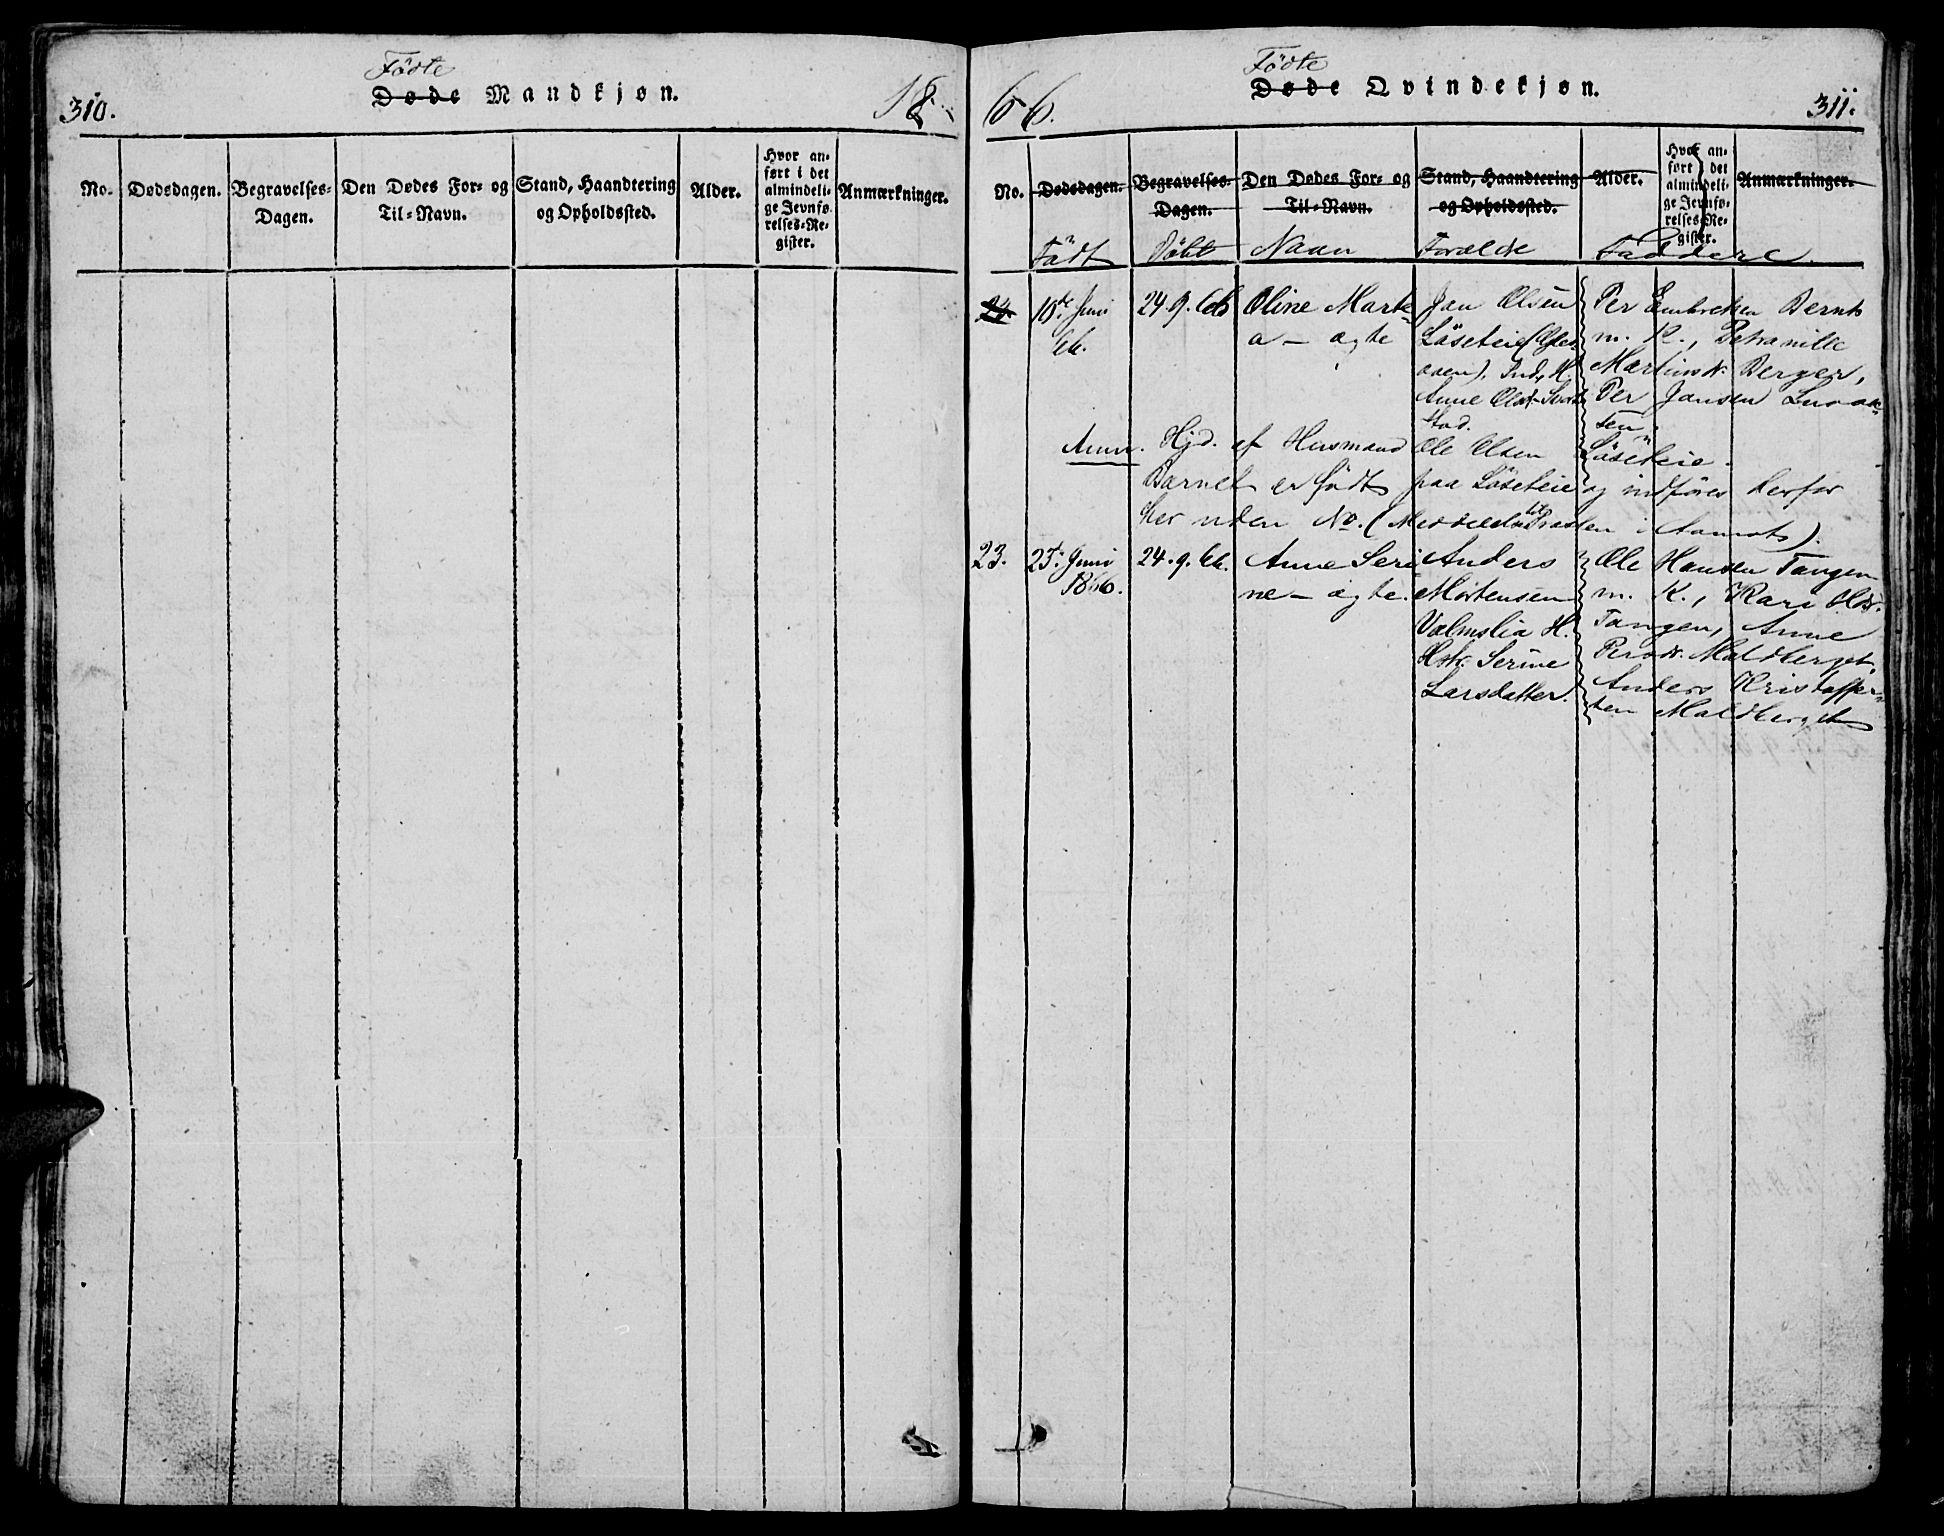 310.
Födte
Døde Mandkjøn.
18
No.
Dødsdagen.
Begravelses-
Dagen.
Den Dødes For- og
Til-Navn.
Stand, Haandtering
og Opholdssted.
Alder.
Hvor an-
ført i det
almindeli-
ge Jevnfø-
relses-Re-
gister.
Anmærkninger.
66.
Födte
Døde Qvindekjøn.
311.
No.
Dødsdagen.
Begravelses-
Dagen.
Den Dødes For- og
Til-Navn.
Stand, Haandtering
og Opholdssted.
Alder.
Hvor an-
ført i det
almindeli-
ge Jevnfø-
relses-Re-
gister.
Anmærkninger.
Födt
Döbt
Navn
Forælde
Faddere.
10de Juni
66.
24.9.66
Oline Marte-
a – ægte
Jan Olsen
Löseteie
Anne Olsd.
stad.
Per Embretsen Bernts
m. K., Petranille
Martinsdr. Berger,
Per Jansen
sen.
Anm. Hjd. af Husmand Ole Olsen Löseteie.
Barnet er födt paa Löseteie og indföres derfor
her uden No. (Meddelt til Præsten i Aamot).
23.
23de Juni
1866.
24.9.66.
Anne Seri
ne – ægte.
Anders
Mortensen
Valmslia H.
Hstr. Serine
Larsdatter.
Ole Hansen Tangen
m. K., Kari Olsdr.
Tangen, Anne
Persdr. Maldberget,
Anders Kristoffer-
sen Maldberget